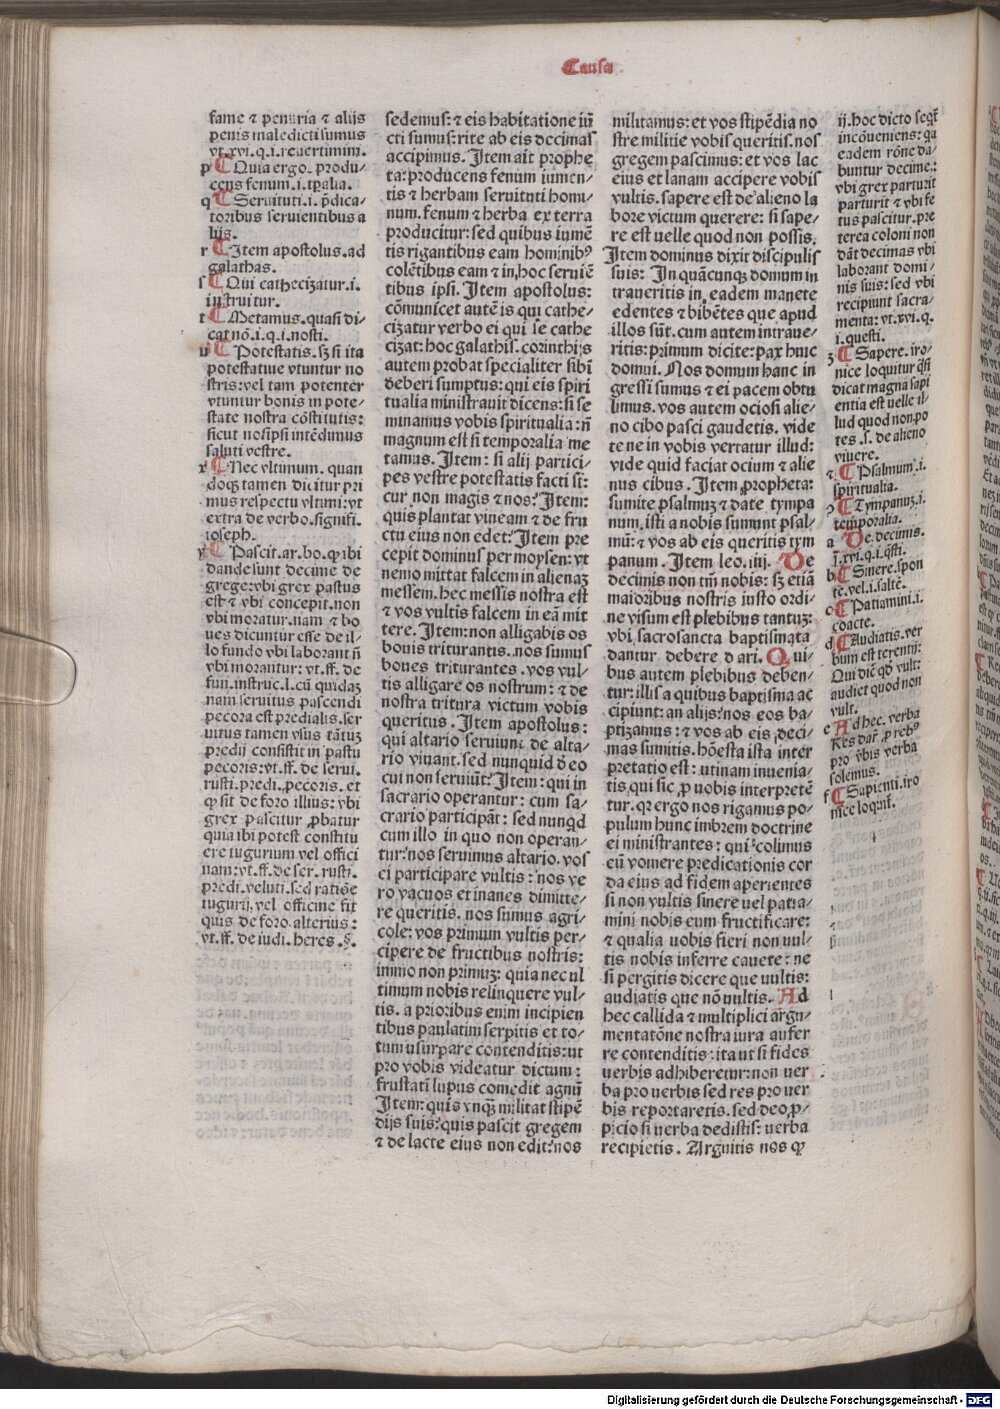 Causa
fame ⁊ penuria ⁊ alijs
penis maledicti sumus
vt.xvi.q.i.reuertimini.
p ¶ Quia ergo. produ/
cens fenum.i.tp̄alia.
q ¶ Seruituti.i.p̄dica/
toribus seruientibus a
lijs.
r ¶ Item apostolus.ad
galathas.
s ¶ Qui cathecizatur.i.
instruitur.
t ¶ Metamus.quasi di/
cat nō.i.q.i.nosti.
u ¶ Potestatis.sꝫ si ita
potestatiue vtuntur no
stris:vel tam potenter
vtuntur bonis in pote/
state nostra cōstitutis:
sicut nosipsi intēdimus
saluti vestre.
x ¶ Nec vltimum. quan
doqꝫ tamen dicitur pri
mus respectu vltimi:vt
extra de verbo.signifi.
ioseph.
y ¶ Pascit.ar.ho.ꝙ ibi
dande sunt decime de
grege:vbi grex pastus
est ⁊ vbi concepit.non
vbi moratur.nam ⁊ bo
ues dicuntur esse de il/
lo fundo vbi laborant n̄
vbi morantur: vt.ff. de
fun.instruc.l.cū quidaꝫ
nam seruitus pascendi
pecora est predialis.ser
uitus tamen vsus tātuꝫ
predij consistit in pastu
pecoris:vt.ff. de serui.
rusti.predi.pecoris. et
ꝙ sit de foro illius: vbi
grex pascitur ꝓbatur
quia ibi potest constitu
ere tugurium vel offici
nam:vt.ff.de ser. rusti.
predi.veluti.sed ratiōe
tugurij.vel officine fit
quis de foro alterius:
vt.ff. de iudi.heres.§.
sedemus: ⁊ eis habitatione iū
cti sumus: rite ab eis decimas
accipimus. Item ait prophe
ta: producens fenum iumen/
tis ⁊ herbam seruituti homi/
num. fenum ⁊ herba ex terra
producitur: sed quibus iumē
tis rigantibus eam hominibꝰ
colētibus eam ⁊ in hoc seruiē
tibus ipsi. Item apostolus:
cōmunicet autē is qui cathe/
cizatur verbo ei qui se cathe
cizat: hoc galathis. corinthijs
autem probat specialiter sibi
deberi sumptus: qui eis spiri
tualia ministrauit dicens: si se
minamus vobis spiritualia: n̄
magnum est si temporalia me
tamus. Item: si alij partici/
pes vestre potestatis facti sī:
cur non magis ⁊ nos? Item:
quis plantat vineam ⁊ de fru
ctu eius non edet? Item pre
cepit dominus per moysen: vt
nemo mittat falcem in alienaꝫ
messem. hec messis nostra est
⁊ vos vultis falcem in eā mit
tere. Item: non alligabis os
bouis triturantis. nos sumus
boues triturantes. vos vul/
tis alligare os nostrum: ⁊ de
nostra tritura victum vobis
queritis. Item apostolus:
qui altario seruiunt de alta/
rio viuant. sed nunquid de eo
cui non seruiūt? Item: qui in
sacrario operantur: cum sa/
crario participāt: sed nunqd
cum illo in quo non operan/
tur? nos seruimus altario. vos
ei participare vultis: nos ve
ro vacuos et inanes dimitte/
re queritis. nos sumus agri/
cole: vos primum vultis per/
cipere de fructibus nostris:
immo non primuꝫ: quia nec ul
timum nobis relinquere vul/
tis. a prioribus enim incipien
tibus paulatim serpitis et to/
tum usurpare contenditis: ut
pro vobis videatur dictum:
frustati lupus comedit agnū
Item: quis vnqꝫ militat stipē
dijs suis? quis pascit gregem
⁊ de lacte eius non edit? nos
militamus: et vos stipēdia no
stre militie vobis queritis. nos
gregem pascimus: et vos lac
eius et lanam accipere vobis
vultis. sapere est de alieno la
bore victum querere: si sape/
re est uelle quod non possis.
Item dominus dixit discipulis
suis: In quācunqꝫ domum in
traueritis in eadem manete
edentes ⁊ bibētes que apud
illos sūt. cum autem intraue/
ritis: primum dicite: pax huic
domui. Nos domum hanc in
gressi sumus ⁊ ei pacem obtu
limus. vos autem ociosi alie/
no cibo pasci gaudetis. vide
te ne in vobis vertatur illud:
vide quid faciat ocium ⁊ alie
nus cibus. Item ꝓpheta:
sumite psalmuꝫ ⁊ date tympa
num. isti a nobis sumunt psal/
mū: ⁊ vos ab eis queritis tym
panum. Item leo. iiij. De
decimis non tm̄ nobis: sꝫ etiā
maioribus nostris iusto ordi/
ne visum est plebibus tantuꝫ:
vbi sacrosancta baptismata
dantur debere dari. Qui/
bus autem plebibus deben/
tur: illis a quibus baptisma ac
cipiunt: an alijs? nos eos ba/
ptizamus: ⁊ vos ab eis deci/
mas sumitis. hōesta ista inter
pretatio est: utinam inuenia/
tis qui sic ꝓ uobis interpretē
tur. qr ergo nos rigamus po/
pulum hunc imbrem doctrine
ei ministrantes: qui colimus
eū vomere predicationis cor
da eius ad fidem aperientes
si non vultis sinere uel patia/
mini nobis eum fructificare:
⁊ qualia uobis fieri non uul/
tis nobis inferre cauete: ne
si pergitis dicere que uultis:
audiatis que nō uultis. Ad
hec callida ⁊ multiplici argu/
mentatōne nostra iura aufer
re contenditis: ita ut si fides
uerbis adhiberetur: non uer
ba pro uerbis sed res pro uer
bis reportaretis. sed deo ꝓ/
picio si uerba dedistis: uerba
recipietis. Arguitis nos ꝙ
ij.hoc dicto seqr̄
incōueniens: qa
eadem rōne da/
buntur decime:
vbi grex parturit
parturit ⁊ vbi fe
tus pascitur.pre
terea coloni non
dāt decimas vbi
laborant domi/
nis suis: sed vbi
recipiunt sacra/
menta: vt.xvi.q.
i.questi.
z ¶ Sapere.iro/
nice loquitur q̄si
dicat magna sapi
entia est uelle il/
lud quod non po
tes .s. de alieno
viuere.
⁊ ¶ Psalmum.i.
spiritualia.
ꝯ ¶ Tympanuꝫ.i.
temporalia.
a De decimis.
j̄.xvi.q.i.q̄sti.
b ¶ Sinere.spon
te.vel.i.saltē.
c ¶ Patiamini.i.
coacte.
d ¶ Audiatis.ver
bum est terentij:
Qui dicē qd̄ vult:
audiet quod non
vult.
e Ad hec. verba
Res dar̄ ꝓ rebꝰ
pro v̄bis verba
solemus.
f ¶ Sapienti.iro
nice loquit̄.
Digitalisierung gefördert durch die Deutsche Forschungsgemeinschaft - DFG